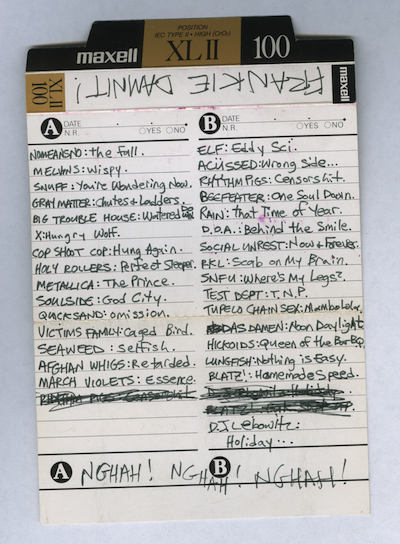 POSITION
IEC TYPE II • HIGH (CrO2)
maxell XL II 100
XL II 100
FRANKIE DAMNIT!
maxell
A DATE
N.R. YES NO
NOMEANSNO: the Fall.
MELVINS: wispy.
SNUFF: You're Wondering Now.
GRAY MATTER: Chutes and Ladders.
BIG TROUBLE HOUSE: Watered
X: Hungry Wolf.
COP SHOOT COP: Hung Again.
HOLY ROLLERS: Perfect Sleeper.
METALLICA: The Prince.
SOULSIDE: God City.
QUICKSAND: omission.
VICTIMS FAMILY: Caged Bird.
SEAWEED: selfish.
AFGHAN WHIGS: Retarded.
MARCH VIOLETS: Essence.
B DATE
N.R. YES NO
ELF: Eddy Sci.
ACÜSSED: Wrong Side...
RHYTHM PIGS: Censorshit.
BEEFEATER: One Soul Down.
RAIN: That Time of Year.
D.O.A.: Behind the Smile.
SOCIAL UNREST: Now & Forever.
RKL: Scab on My Brain.
SNFU: Where's My Legs?
TEST DEPT: T.N.P.
TUPELO CHAIN SEX:
DAS DAMEN: Noon Daylight
HICKOIDS: Queen of the BarBQ
LUNGFISH: Nothing is Easy.
BLATZ: Homemade Speed.
D.J. Lebowitz:
Holiday...
A NGHAH! NGHAH! B NGHAH!